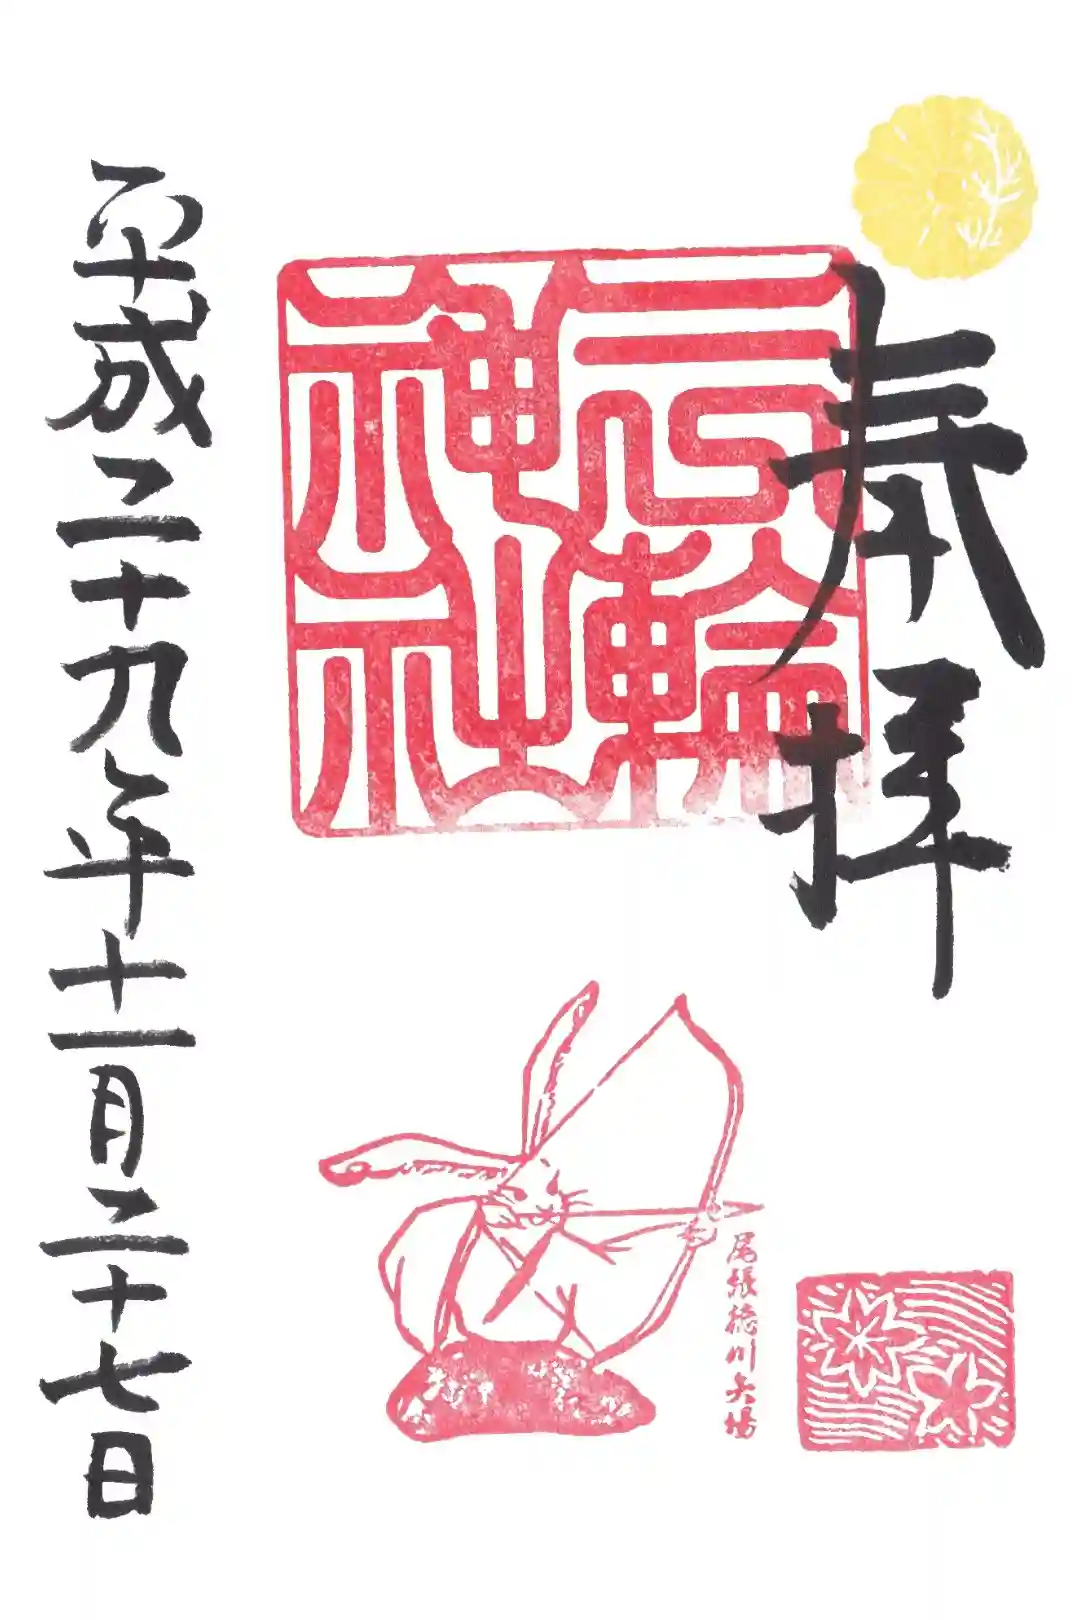 奉拝
三輪
神社
尾張徳川矢場
平成二十九年十一月二十七日